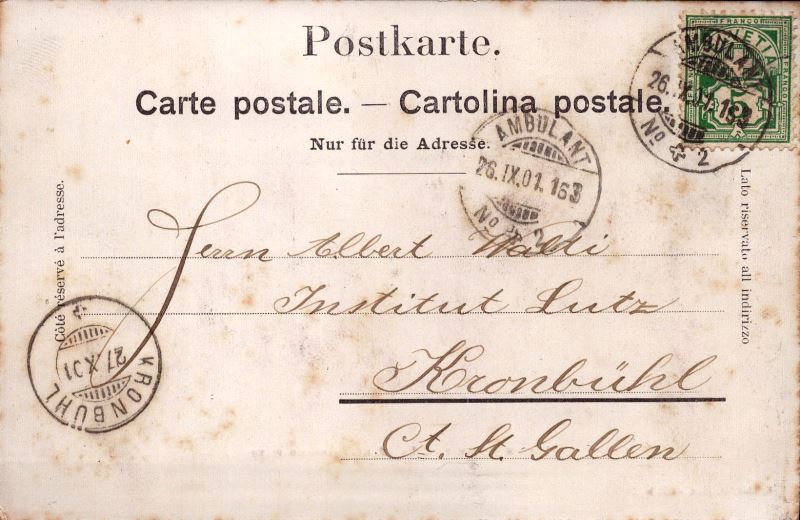 Postkarte.
Carte postale. — Cartolina postale.
Nur für die Adresse.
FRANCO
HELVETIA
AMBULANT
26.IX.01.16
No 2
AMBULANT
26.IX.01.16
No 2
Côté réservé à l'adresse.
Lato riservato all indirizzo
Herrn Albert Waldi
Institut Lutz
Kronbühl
Ct. St. Gallen
27 X 01
KRONBÜHL